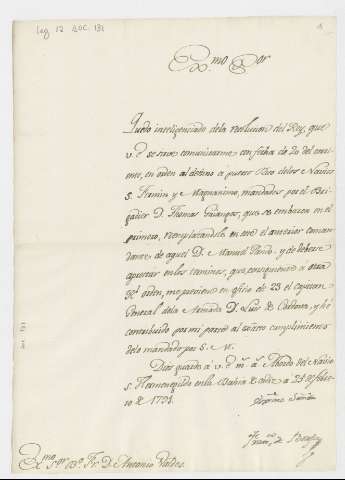 Leg 12 Doc. 131
Exmo Sor
Quedo inteligenciado dela resolucion del Rey, que
V.E. se sirve comunicarme con fecha de 20 del corri-
ento, en orden al destino a puerto Rico delos Navios
S. Fermin, y Magnanimo, mandados por el Bri-
gadier D. Thomas Gayangos, que se embarca en el
primero, reemplazandole en el anterior coman-
dante de aquel D. Manuel Pando, y de deberse
aprestar enlos terminos, que, consiguiente a otra
Rl orden, me previene en oficio de 23 el capitan
General dela Armada D. Luis de Cordova, y he
contribuido por mi parte al exacto cumplimiento
delo mandado por S. M.
Dios guarde á V. E. ms. as. Abordo del Navio
S. Hermenegildo enla Bahia de Cadiz a 25 de febre-
ro de 1791.
Exmo Sor Bo Fr. D. Antonio Valdes.